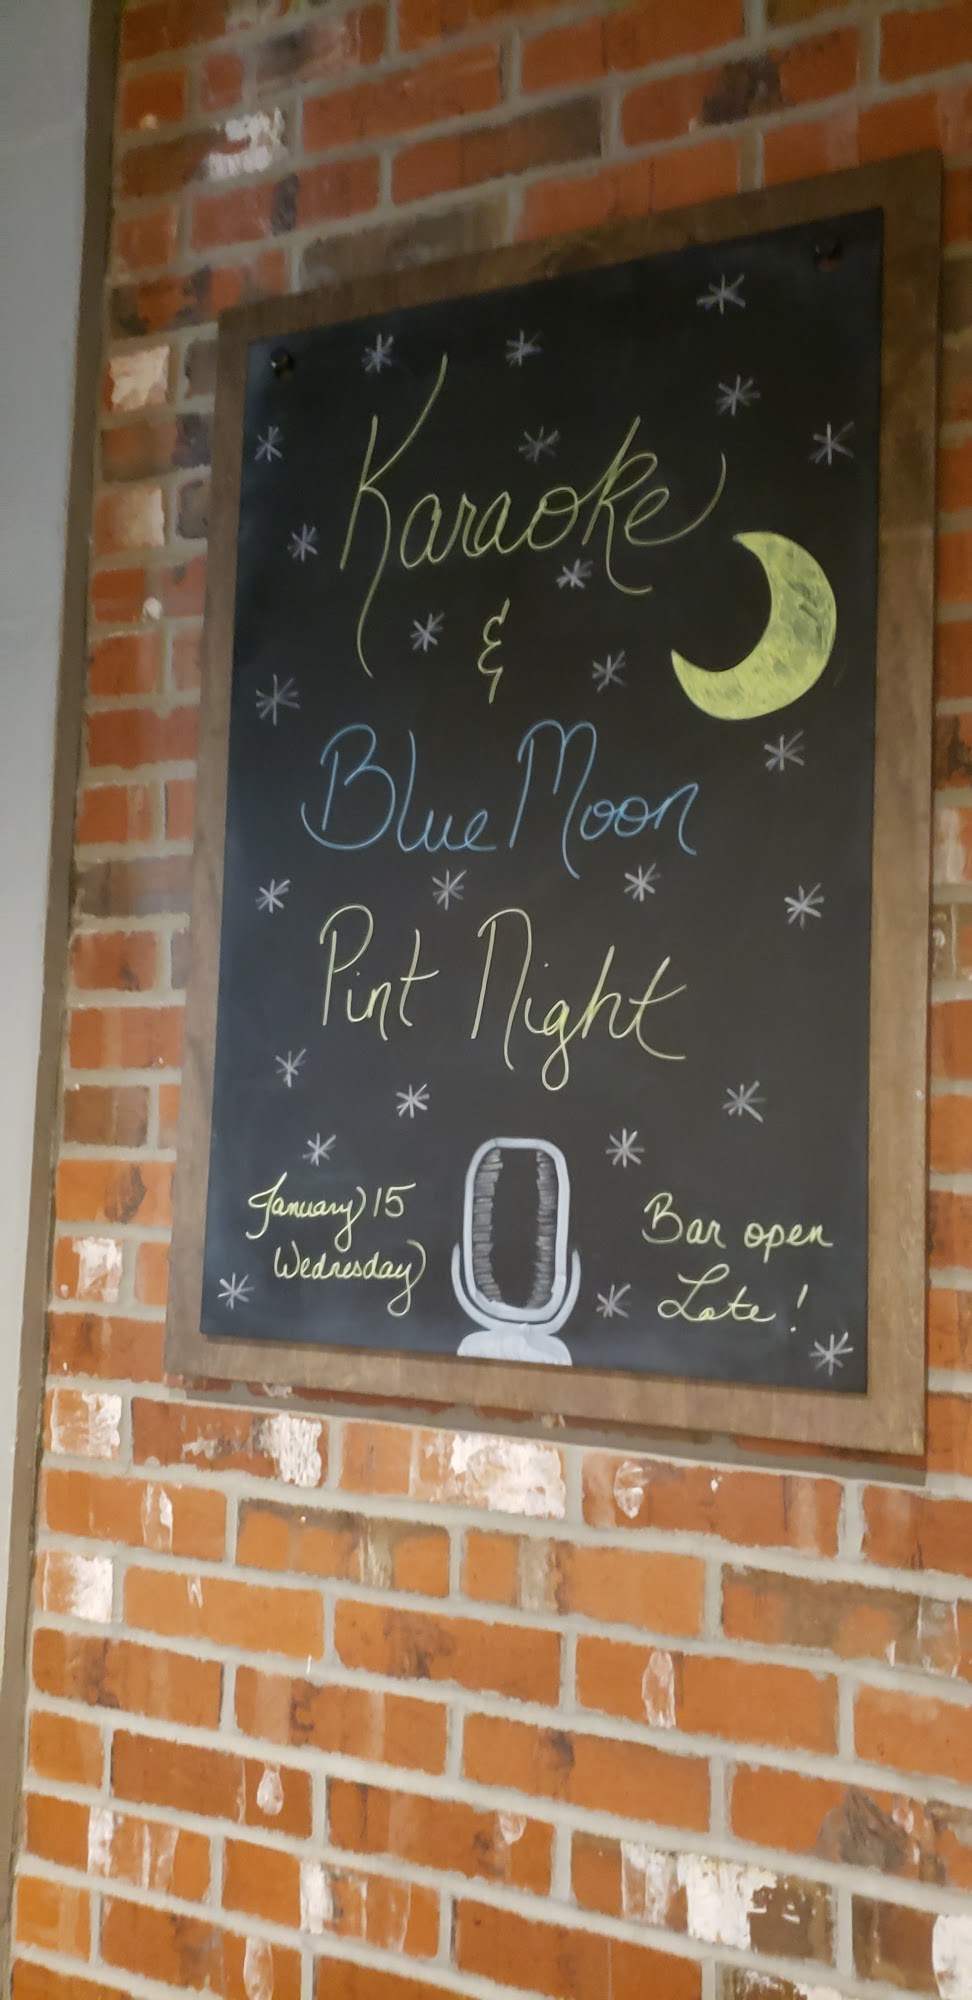 Karaoke
&
Blue Moon
Pint Night
January 15
Wednesday
Bar open
Late!